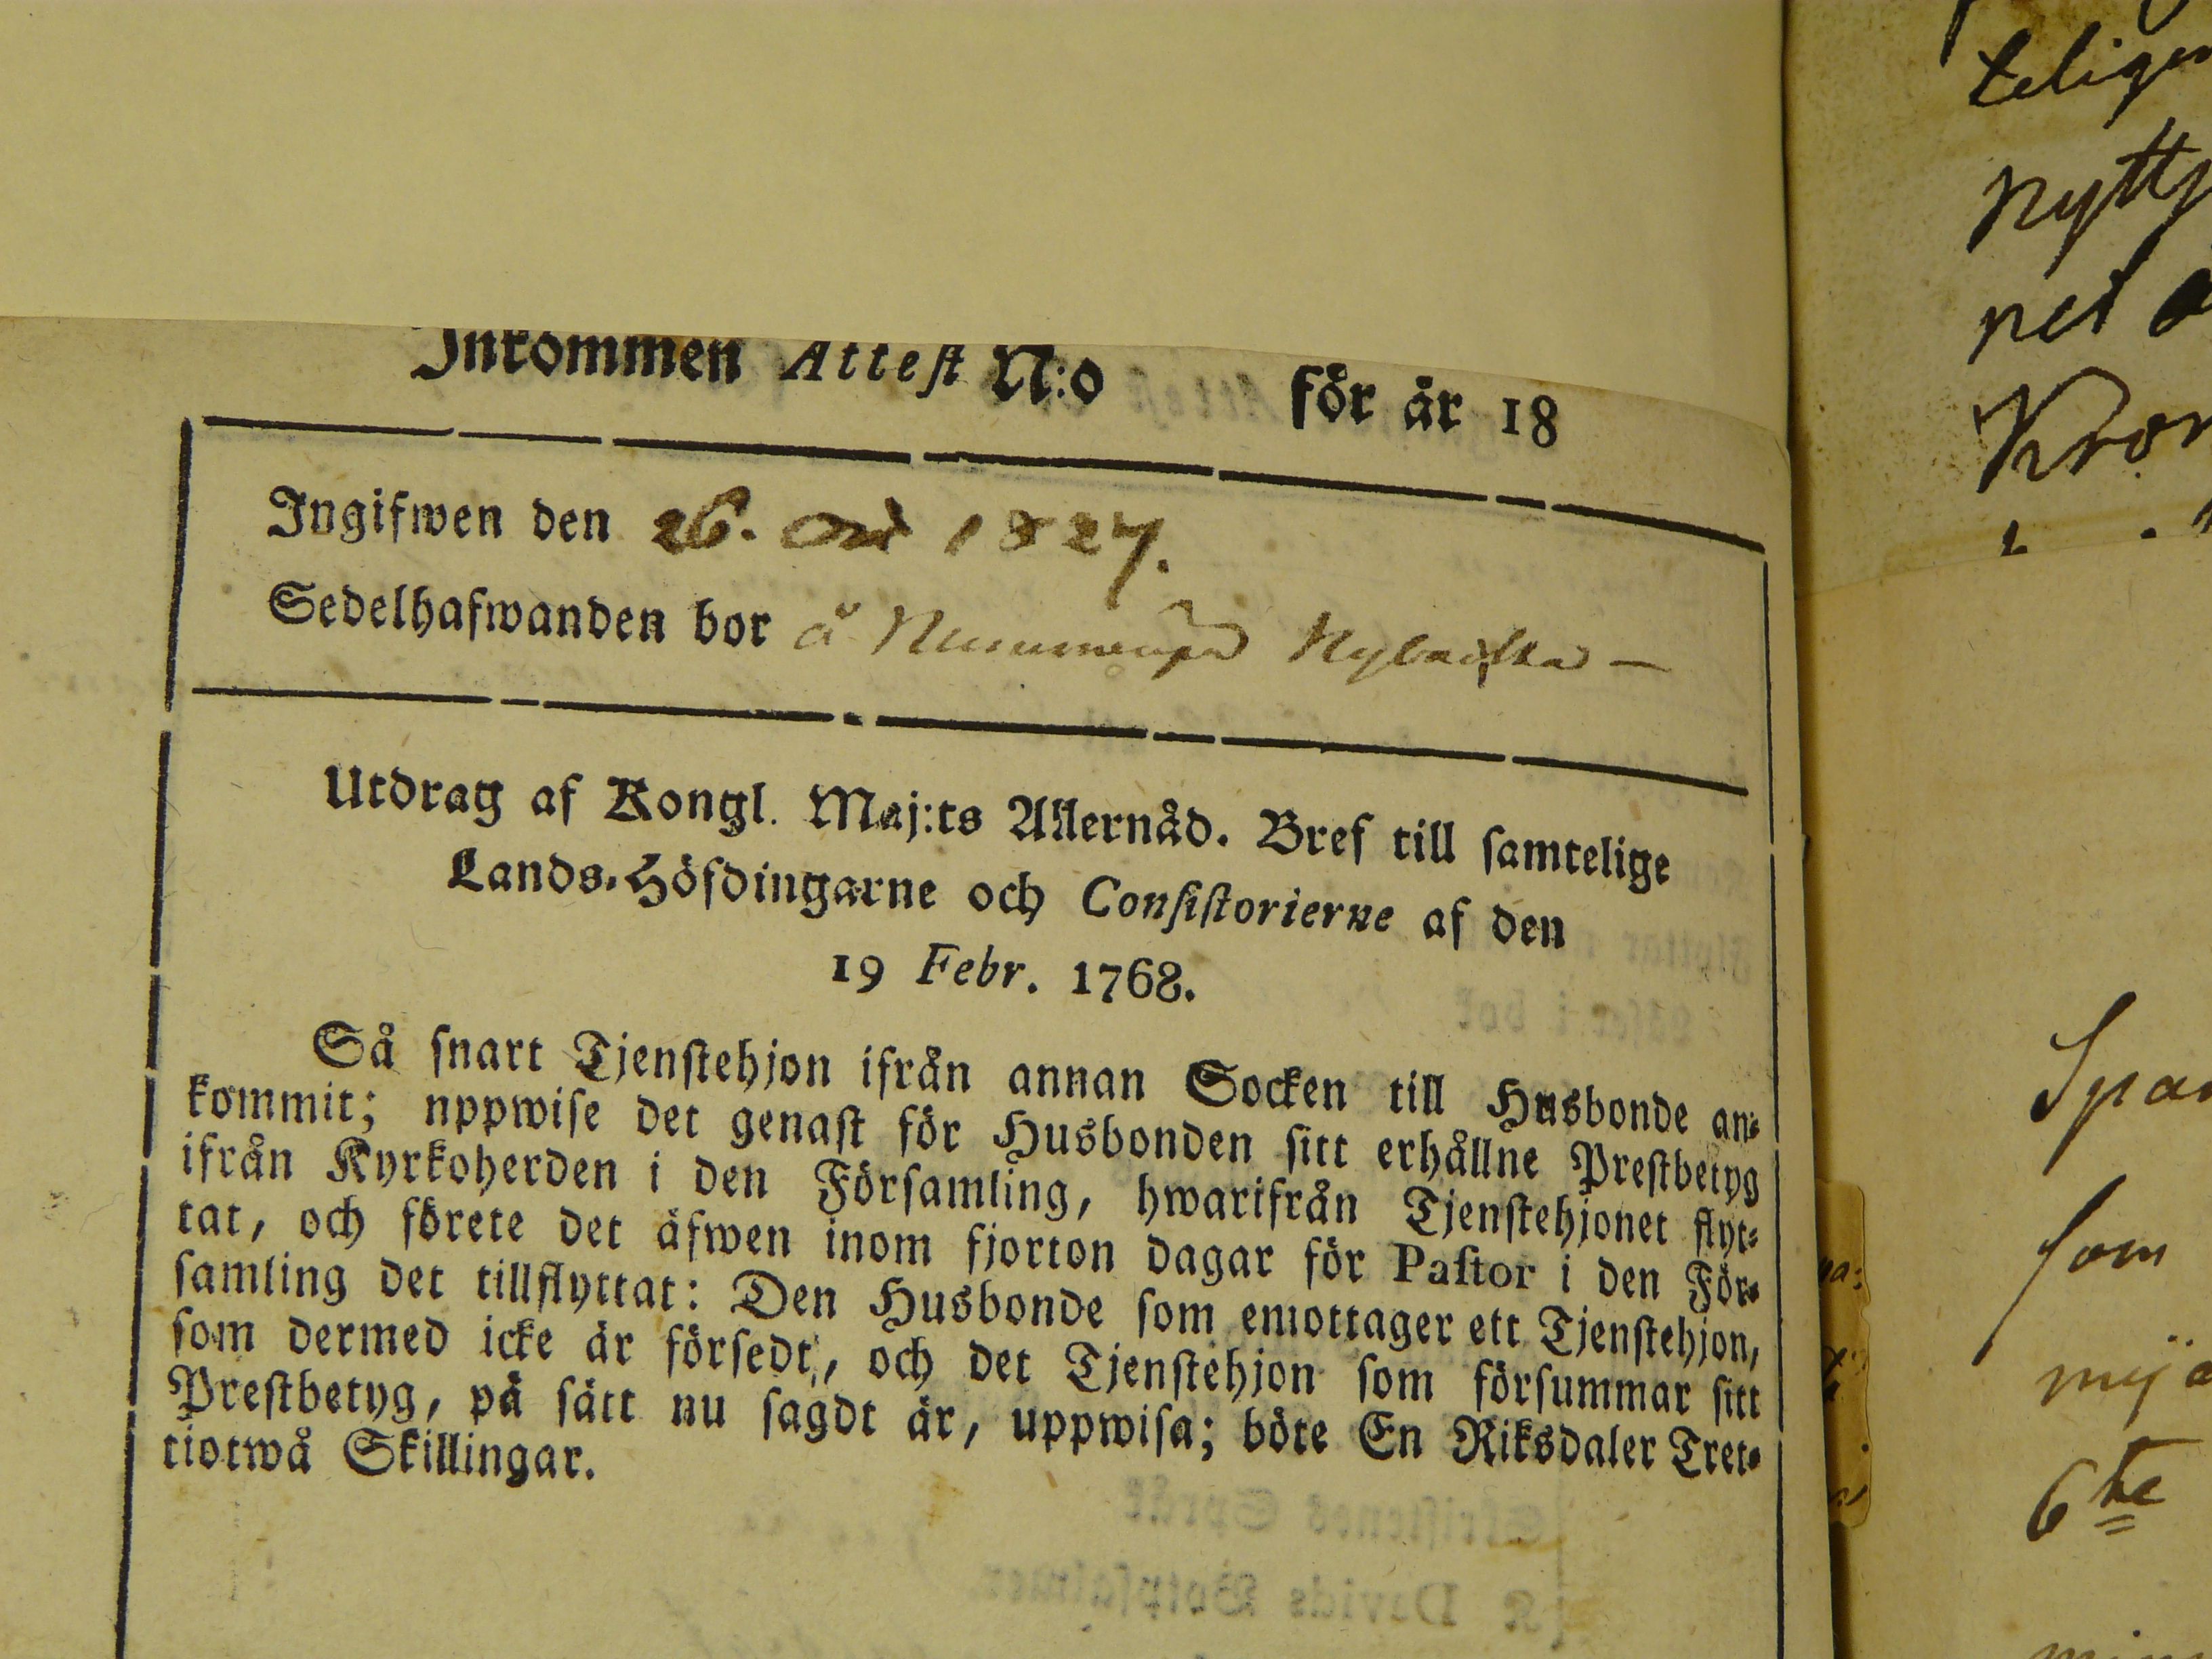 Inkommen Attest N:o för år 18
Ingifwen den 26. 1827.
Sedelhafwanden bor å Nummenpä
Utdrag af Kongl. Maj:ts Allernåd. Bref till samtelige
Lands-Höfdingarne och Consistorierne af den
19 Febr. 1768.
Så snart Tjenstehjon ifrån annan Socken till Husbonde an-
kommit; nppwise det genast för Husbonden sitt erhållne Prestbetyg
ifrån Kyrkoherden i den Församling, hwarifrån Tjenstehjonet flyt-
tat, och förete det äfwen inom fjorton dagar för Pastor i den För-
samling det tillflyttat: Den Husbonde som emottager ett Tjenstehjon,
som dermed icke är försedt, och det Tjenstehjon som försummar sitt
Prestbetyg, på sätt nu sagdt är, uppwisa; böte En Riksdaler Tret-
tiotwå Skillingar.
nytt
Kron
Span
som
6te